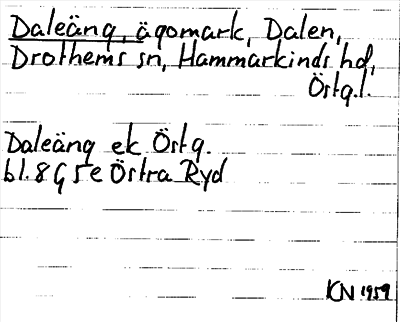 Daleäng, ägomark, Dalen,
Drothems sn, Hammarkinds hd,
Östg.l.
Daleäng ek Östg.
bl. 8 G 5 e Östra Ryd
KN 1959